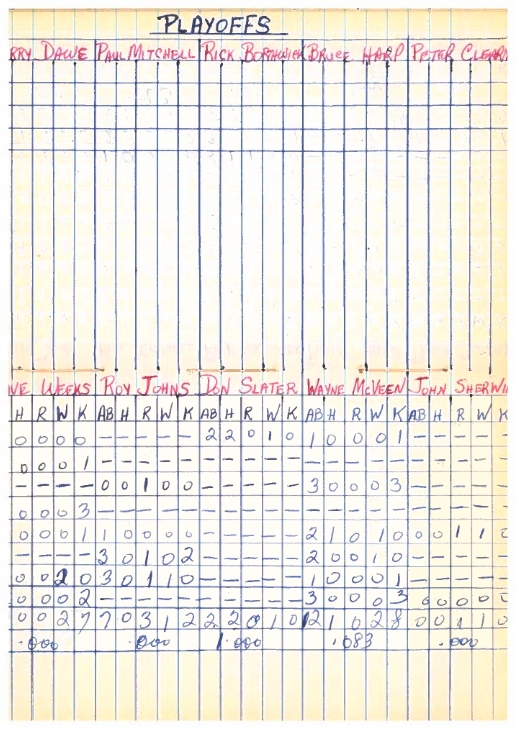 PLAYOFFS
RRY DAWE PAUL MITCHELL RICK BORTHWICK BRUCE HARP PETER CLEAR
VE WEEKS ROY JOHNS DON SLATER WAYNE MCVEEN JOHN SHERWI
H R W K AB H R W K AB H R W K AB H R W K AB H R W K
0 0 0 0 - - - - - 2 2 0 1 0 1 0 0 0 1 - - - - -
0 0 0 1 - - - - - - - - - - - - - - - - - - - -
- - - - 0 0 1 0 0 - - - - - 3 0 0 0 3 - - - - -
0 0 0 3 - - - - - - - - - - - - - - - - - - - -
0 0 0 1 1 0 0 0 0 - - - - - 2 1 0 1 0 0 0 1 1 0
- - - - 3 0 1 0 2 - - - - - 2 0 0 1 0 - - - - -
0 0 2 0 3 0 1 1 0 - - - - - 1 0 0 0 1 - - - - -
0 0 0 2 - - - - - - - - - - 3 0 0 0 3 0 0 0 0 0
0 0 2 7 7 0 3 1 2 2 2 0 1 0 12 1 0 2 8 0 0 1 1 0
.000 .000 1.000 .083 .000